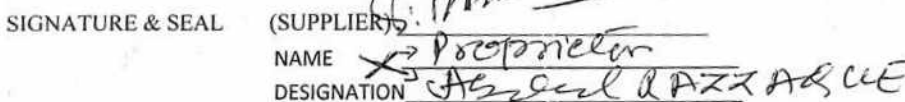 SIGNATURE & SEAL (SUPPLIER)
NAME Proprietor
DESIGNATION Abdul RAZZAQUE